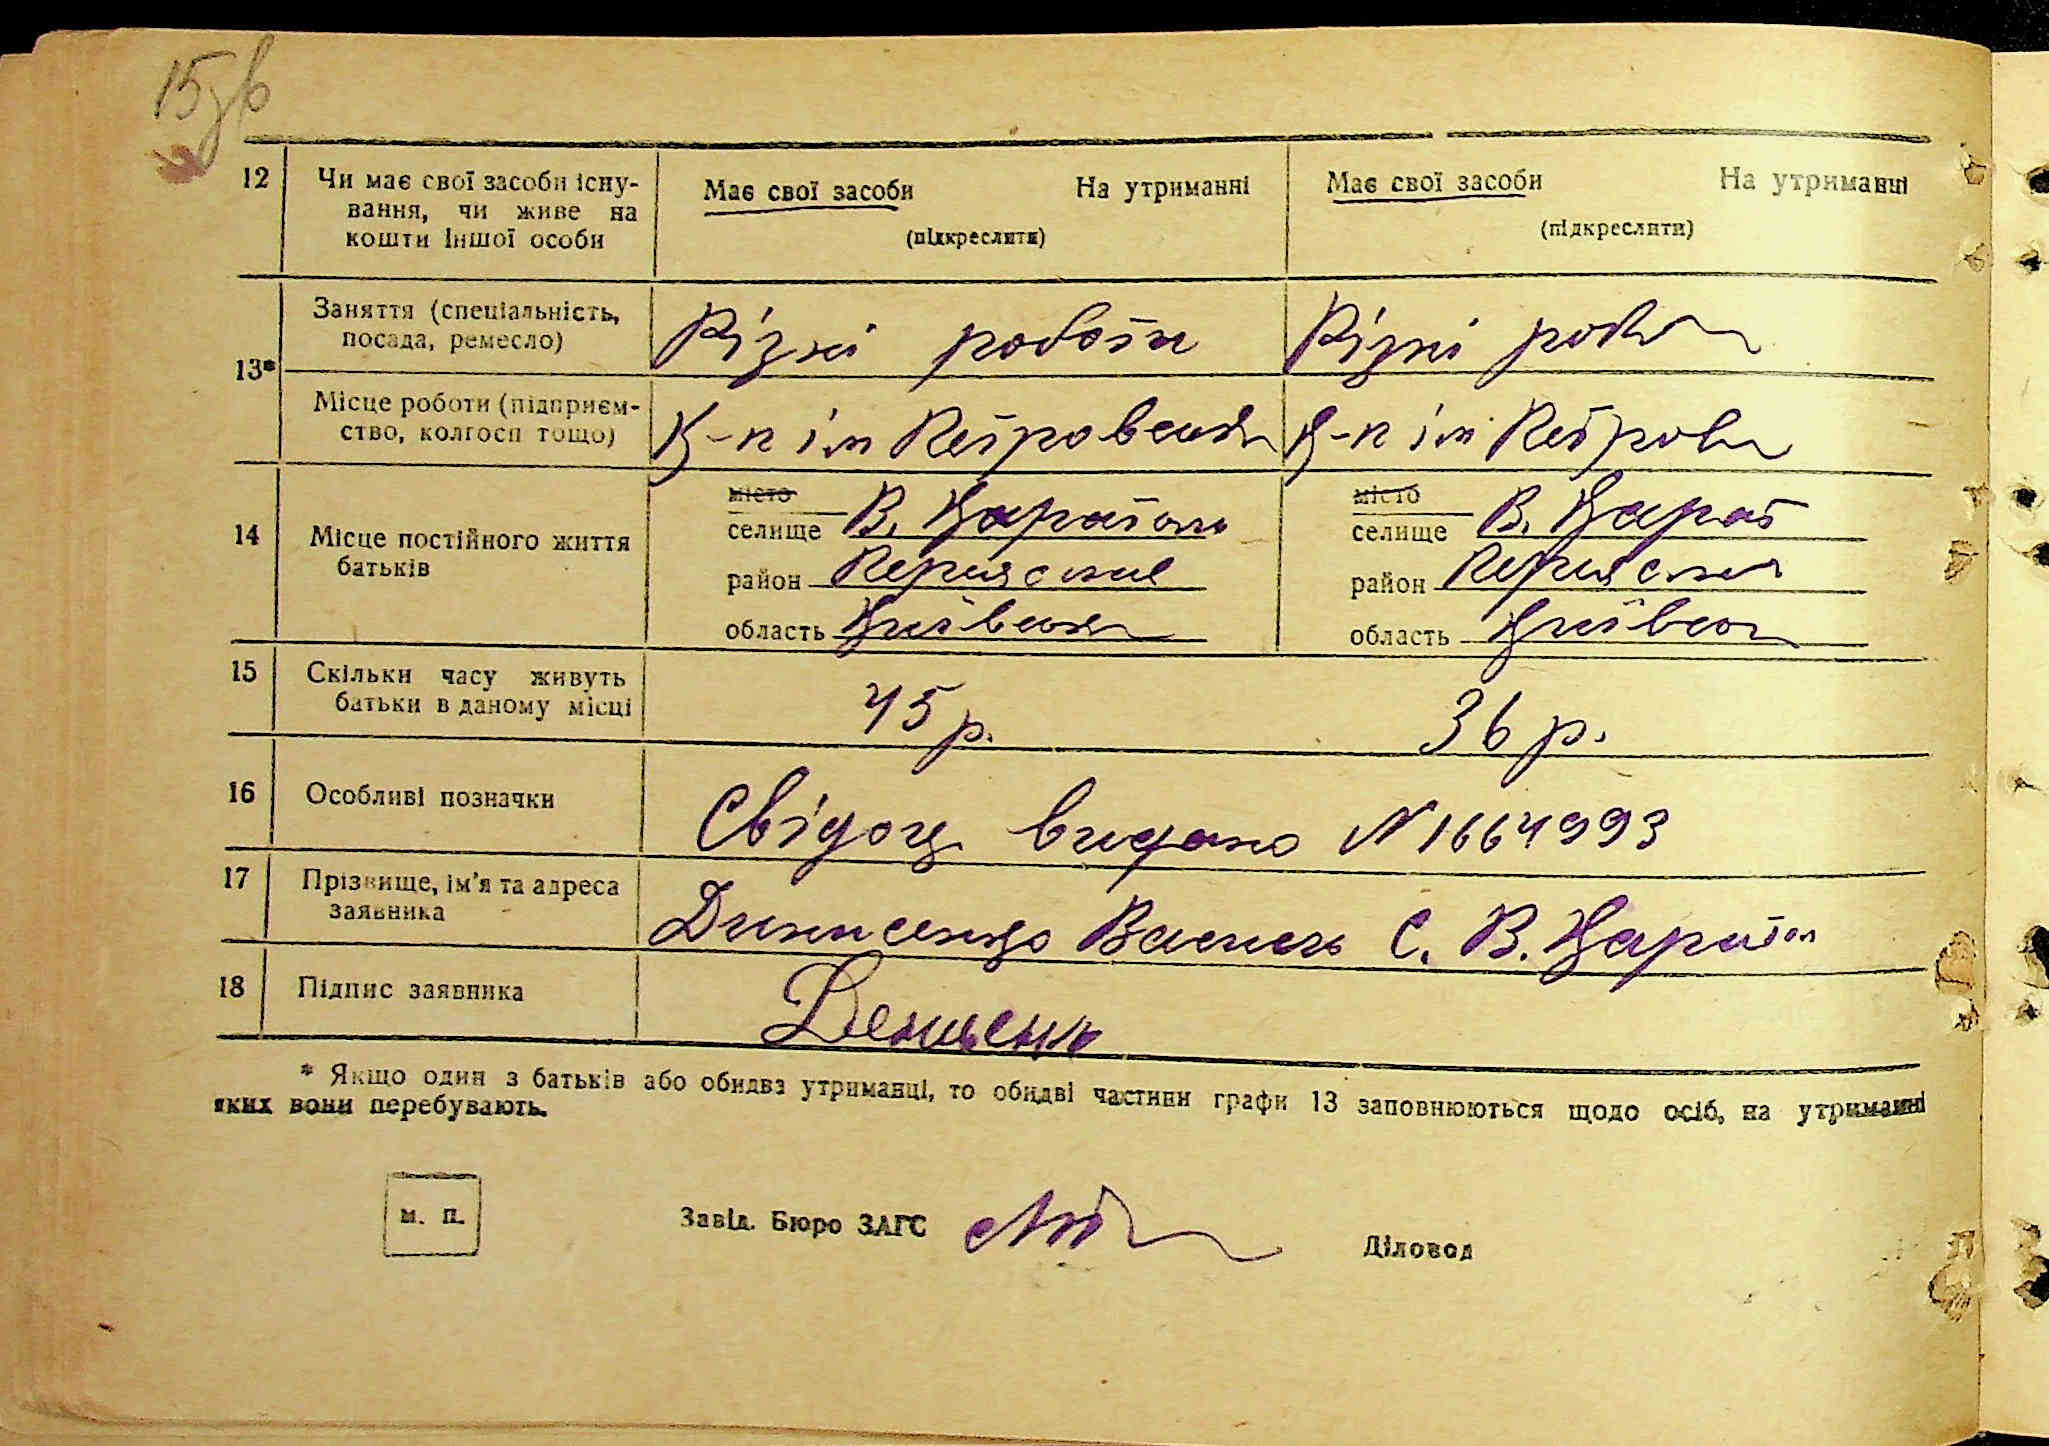 15зв
12 Чи має свої засоби існу-
вання, чи живе на
кошти іншої особи
Має свої засоби На утриманні
(підкреслити)
Має свої засоби На утриманні
(підкреслити)
13*
Заняття (спеціальність,
посада, ремесло)
Різні роботи
Різні робо
Місце роботи (підприєм-
ство, колгосп тощо)
К-п ім Петровськ
К-п ім Петров
14 Місце постійного життя
батьків
місто
селище В. Каратуль
район Переясл
область Київськ
місто
селище В. Карат
район Переясл
область Київськ
15 Скільки часу живуть
батьки в даному місці
45 р.
36 р.
16 Особливі позначки
Свідоц видано N 1664993
17 Прізвище, ім'я та адреса
заявника
Василь С. В. Карат
18 Підпис заявника
* Якщо один з батьків або обидва утриманці, то обидві частини графи 13 заповнюються щодо осіб, на утриманні
яких вони перебувають.
м. п.
Завід. Бюро ЗАГС
Діловод